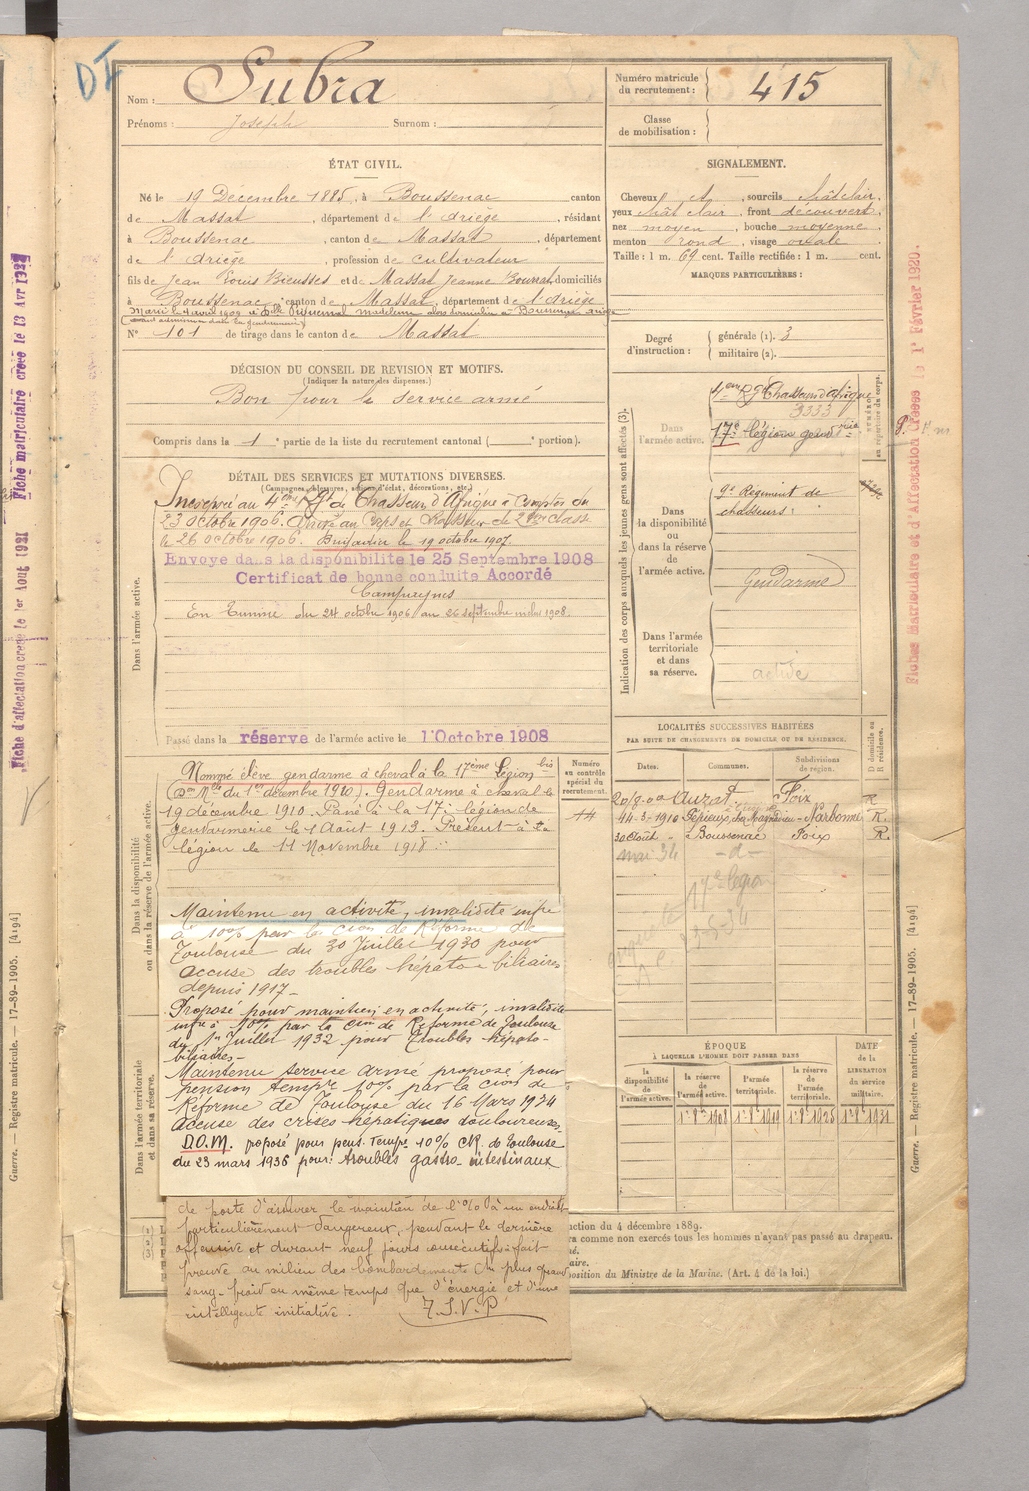 DF
Nom : Subra
Prénoms : Joseph Surnom :
Numéro matricule du recrutement : 415
Classe de mobilisation :
ÉTAT CIVIL.
Né le 19 Décembre 1885, à Boussenac canton
de Massat, département de l'Ariège, résidant
à Boussenac, canton de Massat, département
de l'Ariège, profession de cultivateur
fils de Jean Louis et de Massat Jeanne domiciliés
à Boussenac, canton de Massat, département de l'Ariège
Marié le 4 avril 1909 à
N° 101 de tirage dans le canton de Massat
SIGNALEMENT.
Cheveux , sourcils chât clair,
yeux chât clair, front découvert,
nez moyen, bouche moyenne,
menton rond, visage ovale
Taille : 1 m. 69 cent. Taille rectifiée : 1 m. cent.
MARQUES PARTICULIÈRES :
Degré d'instruction : générale (1). 3
militaire (2).
DÉCISION DU CONSEIL DE REVISION ET MOTIFS.
(Indiquer la nature des dispenses.)
Bon pour le service armé
Compris dans la 1 e partie de la liste du recrutement cantonal ( portion).
DÉTAIL DES SERVICES ET MUTATIONS DIVERSES.
(Campagnes, blessures, actions d'éclat, décorations, etc.)
Dans l'armée active.
Incorporé au 4ème Rgt de Chasseurs d'Afrique à compter du
23 octobre 1906. Arrivé au Corps et Chasseur de 2me classe
le 26 octobre 1906. Brigadier le 19 octobre 1907.
Envoyé dans la disponibilité le 25 Septembre 1908
Certificat de bonne conduite Accordé
Campagnes
En Tunisie du 24 octobre 1906 au 26 septembre inclus 1908.
Passé dans la réserve de l'armée active le 1'Octobre 1908
Dans la disponibilité ou dans la réserve de l'armée active.
Nommé élève gendarme à cheval à la 17ème Légion bis
(Don Mle du 1er décembre 1910). Gendarme à cheval le
19 décembre 1910. Passé à la 17e légion de
gendarmerie le 1 Août 1913. Présent à la
légion le 11 Novembre 1918.
Maintenu en activité, invalidité infre
à 10% par la Cion de Réforme de
Toulouse du 30 Juillet 1930 pour
accuse des troubles hépato biliaires
depuis 1917 -
Proposé pour maintien en activité, invalidité
infre à 10% par la Cion de Réforme de Toulouse
du 1er Juillet 1932 pour Troubles hépato-
biliaires -
Dans l'armée territoriale et dans sa réserve.
Maintenu service armé proposé pour
pension tempre 10% par la cion de
Réforme de Toulouse du 16 Mars 1934
accuse des crises hépatiques douloureuses.
D.O.M. proposé pour pens. tempe 10% CR. de Toulouse
du 23 mars 1936 pour : troubles gastro-intestinaux
de poste d'assurer le maintien de l' à un endroit
particulièrement dangereux, pendant la dernière
offensive et durant neuf jours consécutifs : fait
preuve au milieu des bombardements du plus grand
sang-froid en même temps que d'énergie et d'une
intelligente initiative.
T.S.V.P
Indication des corps auxquels les jeunes gens sont affectés (3).
NUMÉRO au répertoire du corps.
Dans l'armée active.
4ème Rgt Chasseurs d'Afrique
3333
17e légion gendrie
Dans la disponibilité ou dans la réserve de l'armée active.
9e Régiment de
chasseurs.
Gendarme
Dans l'armée territoriale et dans sa réserve.
active
LOCALITÉS SUCCESSIVES HABITÉES
PAR SUITE DE CHANGEMENTS DE DOMICILE OU DE RÉSIDENCE.
Numéro au contrôle spécial du recrutement.
Dates. Communes. Subdivisions de région. D domicile ou R résidence.
Auzat Foix R
14-3-1910 Narbonne R.
30 août Boussenac Foix R.
mai 34 - d -
17e légion
ÉPOQUE
À LAQUELLE L'HOMME DOIT PASSER DANS
DATE de la LIBÉRATION du service militaire.
la disponibilité de l'armée active.
la réserve de l'armée active.
l'armée territoriale.
la réserve de l'armée territoriale.
1er 8bre 1908 1er 8bre 1919 1er 8bre 1925 1er 8bre 1931
ction du 4 décembre 1889.
ra comme non exercés tous les hommes n'ayant pas passé au drapeau.
position du Ministre de la Marine. (Art. 4 de la loi.)
Guerre. — Registre matricule. — 17-89-1905. [4194]
Guerre. — Registre matricule. — 17-89-1905. [4194]
Fiches Matriculaire et d'Affectation Créées le 1r Février 1920.
Fiche d'affectation créée le 1er Août 1931
Fiche matriculaire créée le 13 Avr